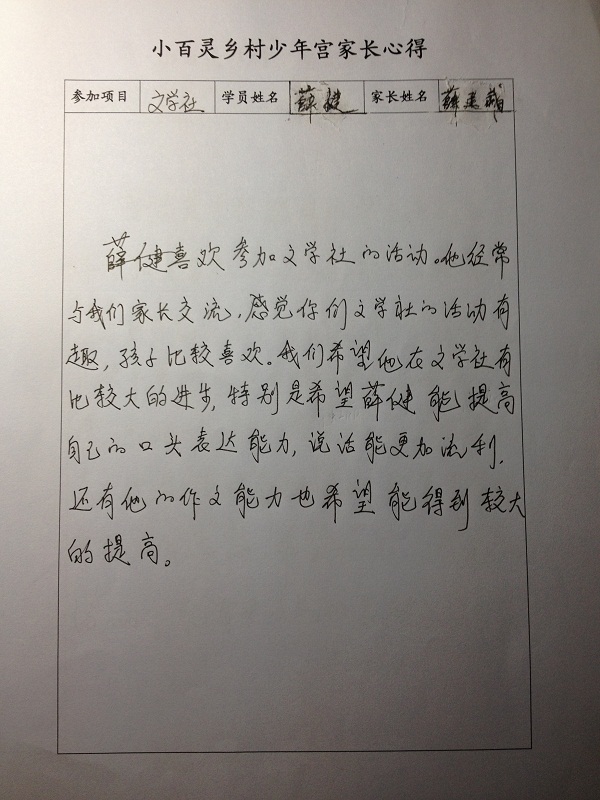 小百灵乡村少年宫家长心得
参加项目 文学社 学员姓名 薛健 家长姓名 薛
薛健喜欢参加文学社的活动。他经常
与我们家长交流,感觉你们文学社的活动有
趣,孩子比较喜欢。我们希望他在文学社有
比较大的进步,特别是希望薛健能提高
自己的口头表达能力,说话能更加流利,
还有他的作文能力也希望能得到较大
的提高。